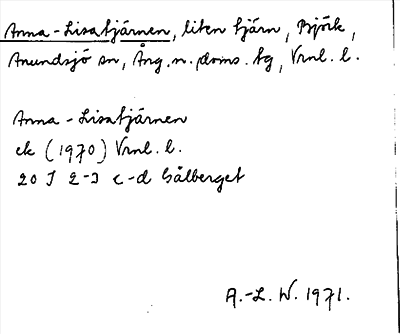 Anna-Lisatjärnen, liten tjärn, Björk,
Anundsjö sn, Ång. n. doms. tg, Vrnl. l.
Anna-Lisatjärnen
ek (1970) Vrnl. l.
20 J 2-3 c-d Gålberget
A.-L. W. 1971.